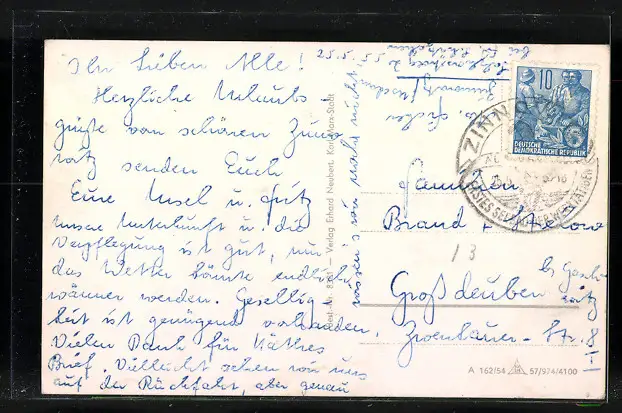 Ihr Lieben Alle! 25.5.55
Herzliche Urlaubs-
grüße vom schönen Zinno
senden Euch
Eure Ursel u. Fritz
unsere Unterkunft u. die
Verpflegung ist gut, nur
das Wetter könnte endlich
wärmer werden. Gesellig-
keit ist genügend vorhanden.
Vielen Dank für Käthes
Brief. Vielleicht sehen wir uns
auf der Rückfahrt, aber genau
wissen's wir noch nicht!
Verlag Erhard Neubert, Karl-Marx-Stadt
10
DEUTSCHE
DEMOKRATISCHE REPUBLIK
ZINNO
Familien
Brand
13
b. Gaschwitz
Großdeuben
Zwenkauer-Str. 8
A 162/54 57/974/4100